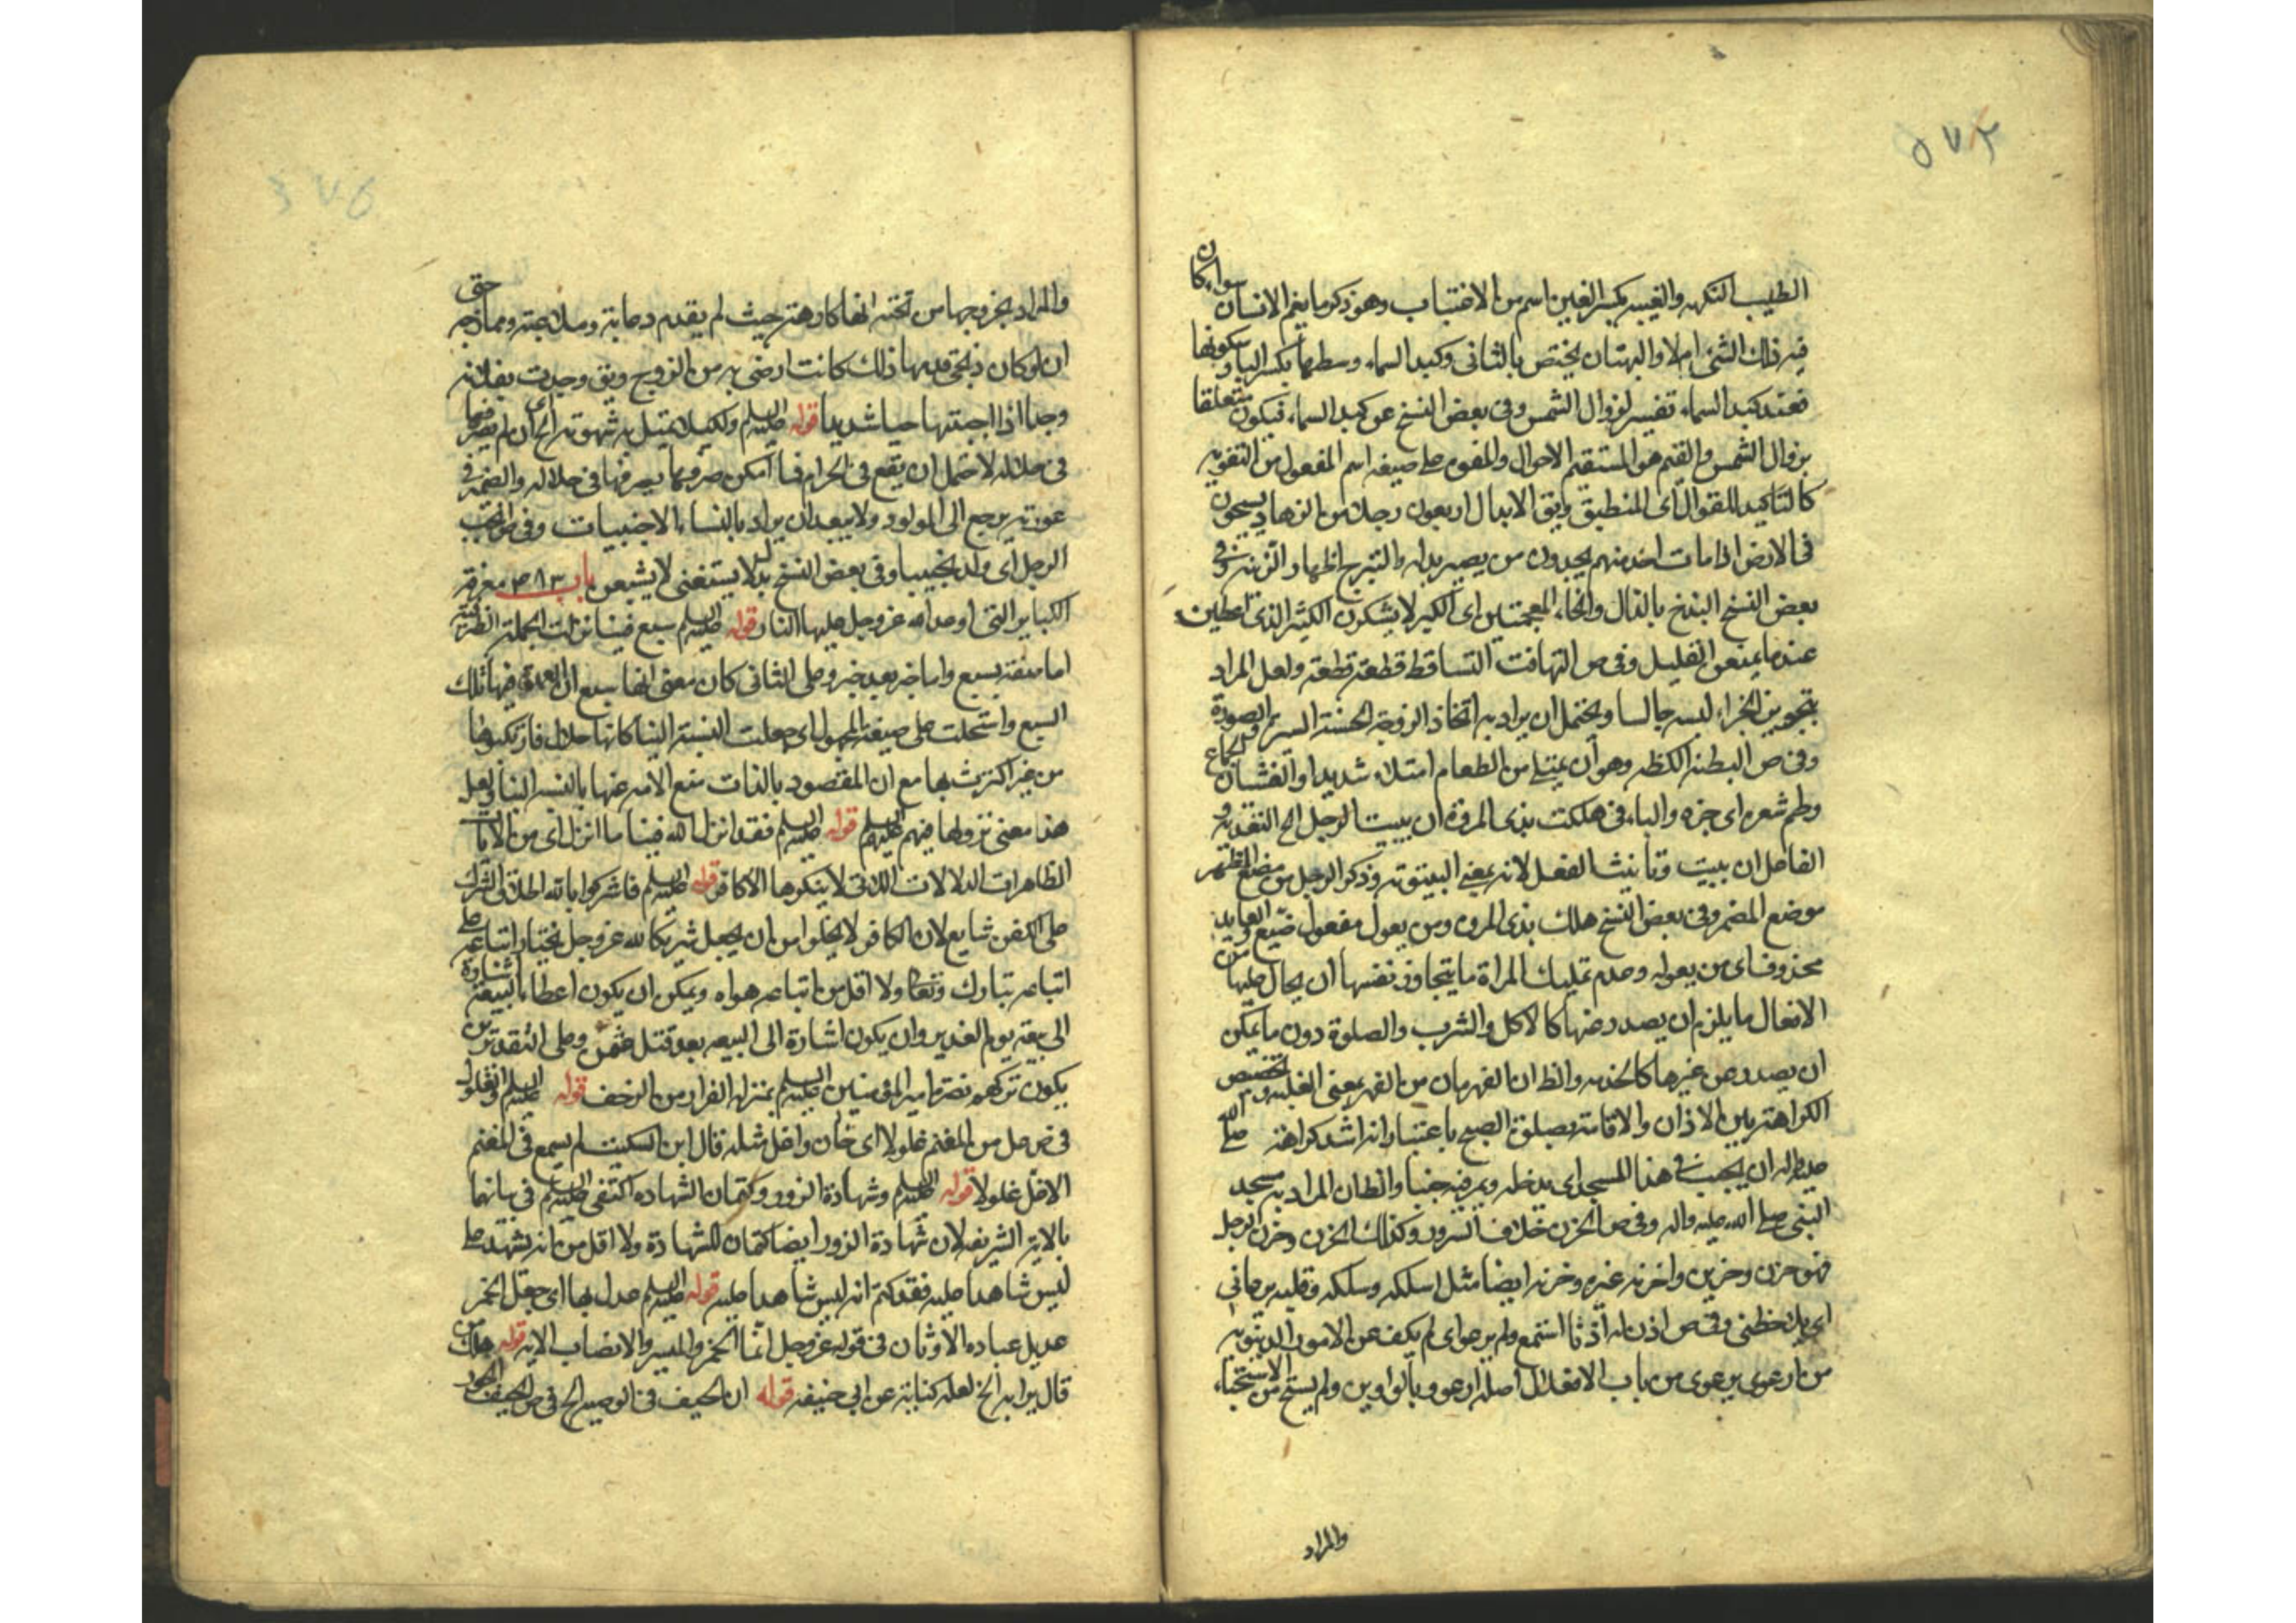 ٥٧٢
الطيب النكهه والغيبه بكسر الغين اسم من الاغتياب وهو ذكر ما يغم الانسان سواء كان
فيه ذلك الشئ ام لا والبهتان يختص بالثانى وكبد السماء وسطها بكسر الباء وسكونها
فعند كبد السماء تفسير لزوال الشمس وفى بعض النسخ عن كبد السماء فيكون متعلقا
بزوال الشمس والقيم هو المستقيم الاحوال والمقوم على صيغه اسم المفعول من التقويم
كالتاكيد للقوال اى المنطبق ويق الابدال اربعون رجلا من الزهاد يسيحون
فى الارض اذا مات احد منهم يجدون من يصير بدله والتبرج اظهار الزينه وفى
بعض النسخ البذخ بالذال والخاء المعجمتين اى الكبر لا يشكرون الكثير الذى اعطين
عند ما يمنعن القليل وفى ص التهافت التساقط قطعة قطعة ولعل المراد
بتجويز الخراء ليس جالسا ويحتمل ان يراد به اتخاذ الزوجة الحسنة السر والصورة
وفى ص البطنه الكظه وهو ان يمتلى من الطعام امتلاء شديدا والغشيان الجماع
وطم شعره اى جزه والباء فى هلكت بذى المروة ان يبيت الرجل الخ التقدير
الفاعل ان يبيت وتانيث الفعل لانه بمعنى البيتوته وذكر الرجل من وضع المظهر
موضع المضمر وفى بعض النسخ هلك بذى المروه ومن يعول مفعول ضيع والعايد
محذوف اى من يعوله وعدم تمليك المراة ما يتجاوز نفسها ان يحال عليها من
الافعال ما يلزم ان يصدر عنها كالاكل والشرب والصلوة دون ما يمكن
ان يصدر عن غيرها كالخدمه والظ ان القهرمان من القهر بمعنى الغلبه وتخصيص
الكراهة بين الاذان والاقامة بصلوة الصبح باعتبار انه اشد كراهة صلى الله
عليه واله ان يجنب فى هذا المسجد اى يدخله ويمر فيه جنبا والظان المراد به مسجد
النبى صلى الله عليه واله وفى ص الحزن خلاف السرور وكذلك الحزن وحزن الرجل
فهو حزن وحزين واحزنه غيره وحزنه ايضا مثل اسلكه وسلكه
اى يلحظنى وفى ص اذن له اذنا استمع ولم يرعو اى لم يكف عن الامور الدنيويه
من ارعوى يرعوى من باب الافعلال اصله ارعوو بالواوين ولم يستح من الاستحياء
والمراد
٥٧٤
والمراد بخروجها من تحته انها كارهة حيث لم يقدم دعابة وملاعبة وممازجه حتى
ان لو كان زنجى فعل بها ذلك كانت ارضى به من الزوج ويق وجدت بفلانه
وجدا اذا احببتها حبا شديدا قوله عليه السلم ولكيلا تميل به شهوته الخ اى ان لم يصرفها
فى حلاله لاحتمل ان يقع فى الحرام فما امكن صرفها يصرفها فى حلاله والضمير فى
عورته يرجع الى المولود ولا يبعد ان يراد بالنساء الاجنبيات وفى ص انجب
الرجل اى ولد نجيبا وفى بعض النسخ بدل لا يستغنى لا يشبعن باب ٣٨٣ معرفة
الكباير التى اوعد الله عز وجل عليها النار قوله عليه السلم سبع فينا نزلت الجملة الظرفية
اما صفة بسبع واما خبر بعد خبر وعلى الثانى كان معنى انها سبع ان العمدة فيها تلك
السبع واستحلت على صيغة المجهول اى جعلت النسبة الينا كانها حلال فارتكبوها
من غير اكتراث بها مع ان المقصود بالذات منع الامه عنها بالنسبه الينا ولعل
هذا معنى نزولها فيهم عليهم السلم قوله عليه السلم فقد انزل الله فينا ما انزل اى من الايات
الظاهرات الدلالات التى لا ينكرها الا كافر قوله عليه السلم فاشركوا بالله اطلاق الشرك
على الكفر شايع لان الكافر لا يخلو امن ان يجعل شريكا لله عز وجل يختار اتباعه على
اتباعه تبارك وتعالى ولا اقل من اتباعه هواه ويمكن ان يكون اعطاء البيعة اشارة
الى بيعة يوم الغدير وان يكون اشارة الى البيعه بعد قتل عثمن وعلى التقديرين
يكون تركهم نصرة امير المؤمنين عليه السلم بمنزلة الفرار من الزحف قوله عليه السلم والغلول
فى ص غل من المغنم غلولا اى خان واغل مثله قال ابن السكيت لم يسمع فى المغنم
الا غل غلولا قوله عليه السلم وشهادة الزور وكتمان الشهاده اكتفى عليه السلم فى بيانهما
بالاية الشريفه لان شهادة الزور ايضا كتمان للشهادة ولا اقل من انه يشهد على
ليس شاهدا عليه فقد كتم انه ليس شاهدا عليه قوله عليه السلم عدل بها اى جعل الخمر
عديل عباده الاوثان فى قوله عز وجل انما الخمر والميسر والانصاب الايه قوله هلك من
قال برايه الخ لعله كناية عن ابى حنيفه قوله ان الحيف فى الوصيه الخ فى ص الحيف الجور